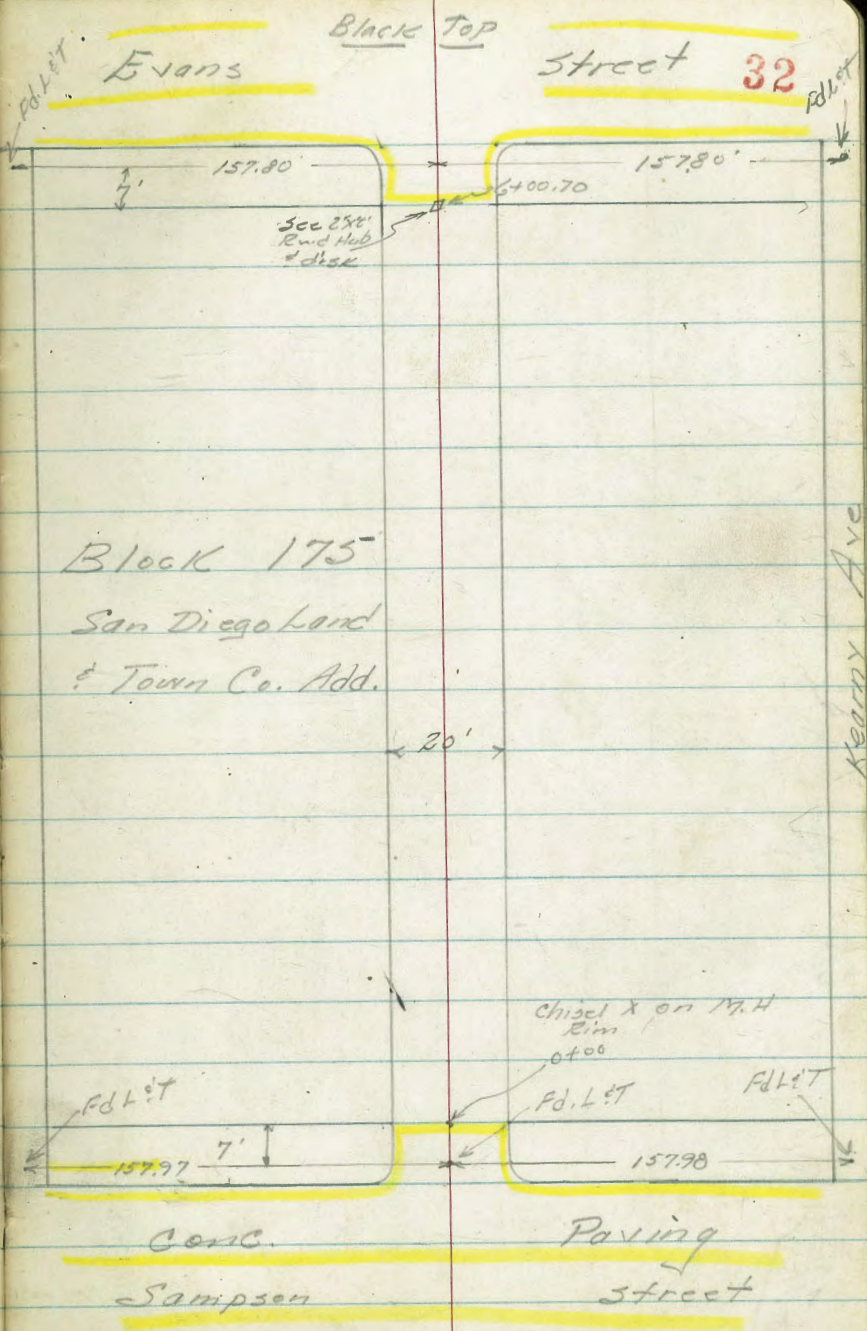 Black Top
Evans Street 32
Fd. L & T
Fd L & T
157.80' 157.80'
7'
6+00.70
See 2"x2"
Rwd Hub
& disk
Block 175
San Diego Land
& Town Co. Add.
Kearny Ave
20'
Chisel X on M.H
Rim
0+00
Fd L & T
Fd. L & T
Fd L & T
7'
157.97 157.98
Conc. Paving
Sampson Street